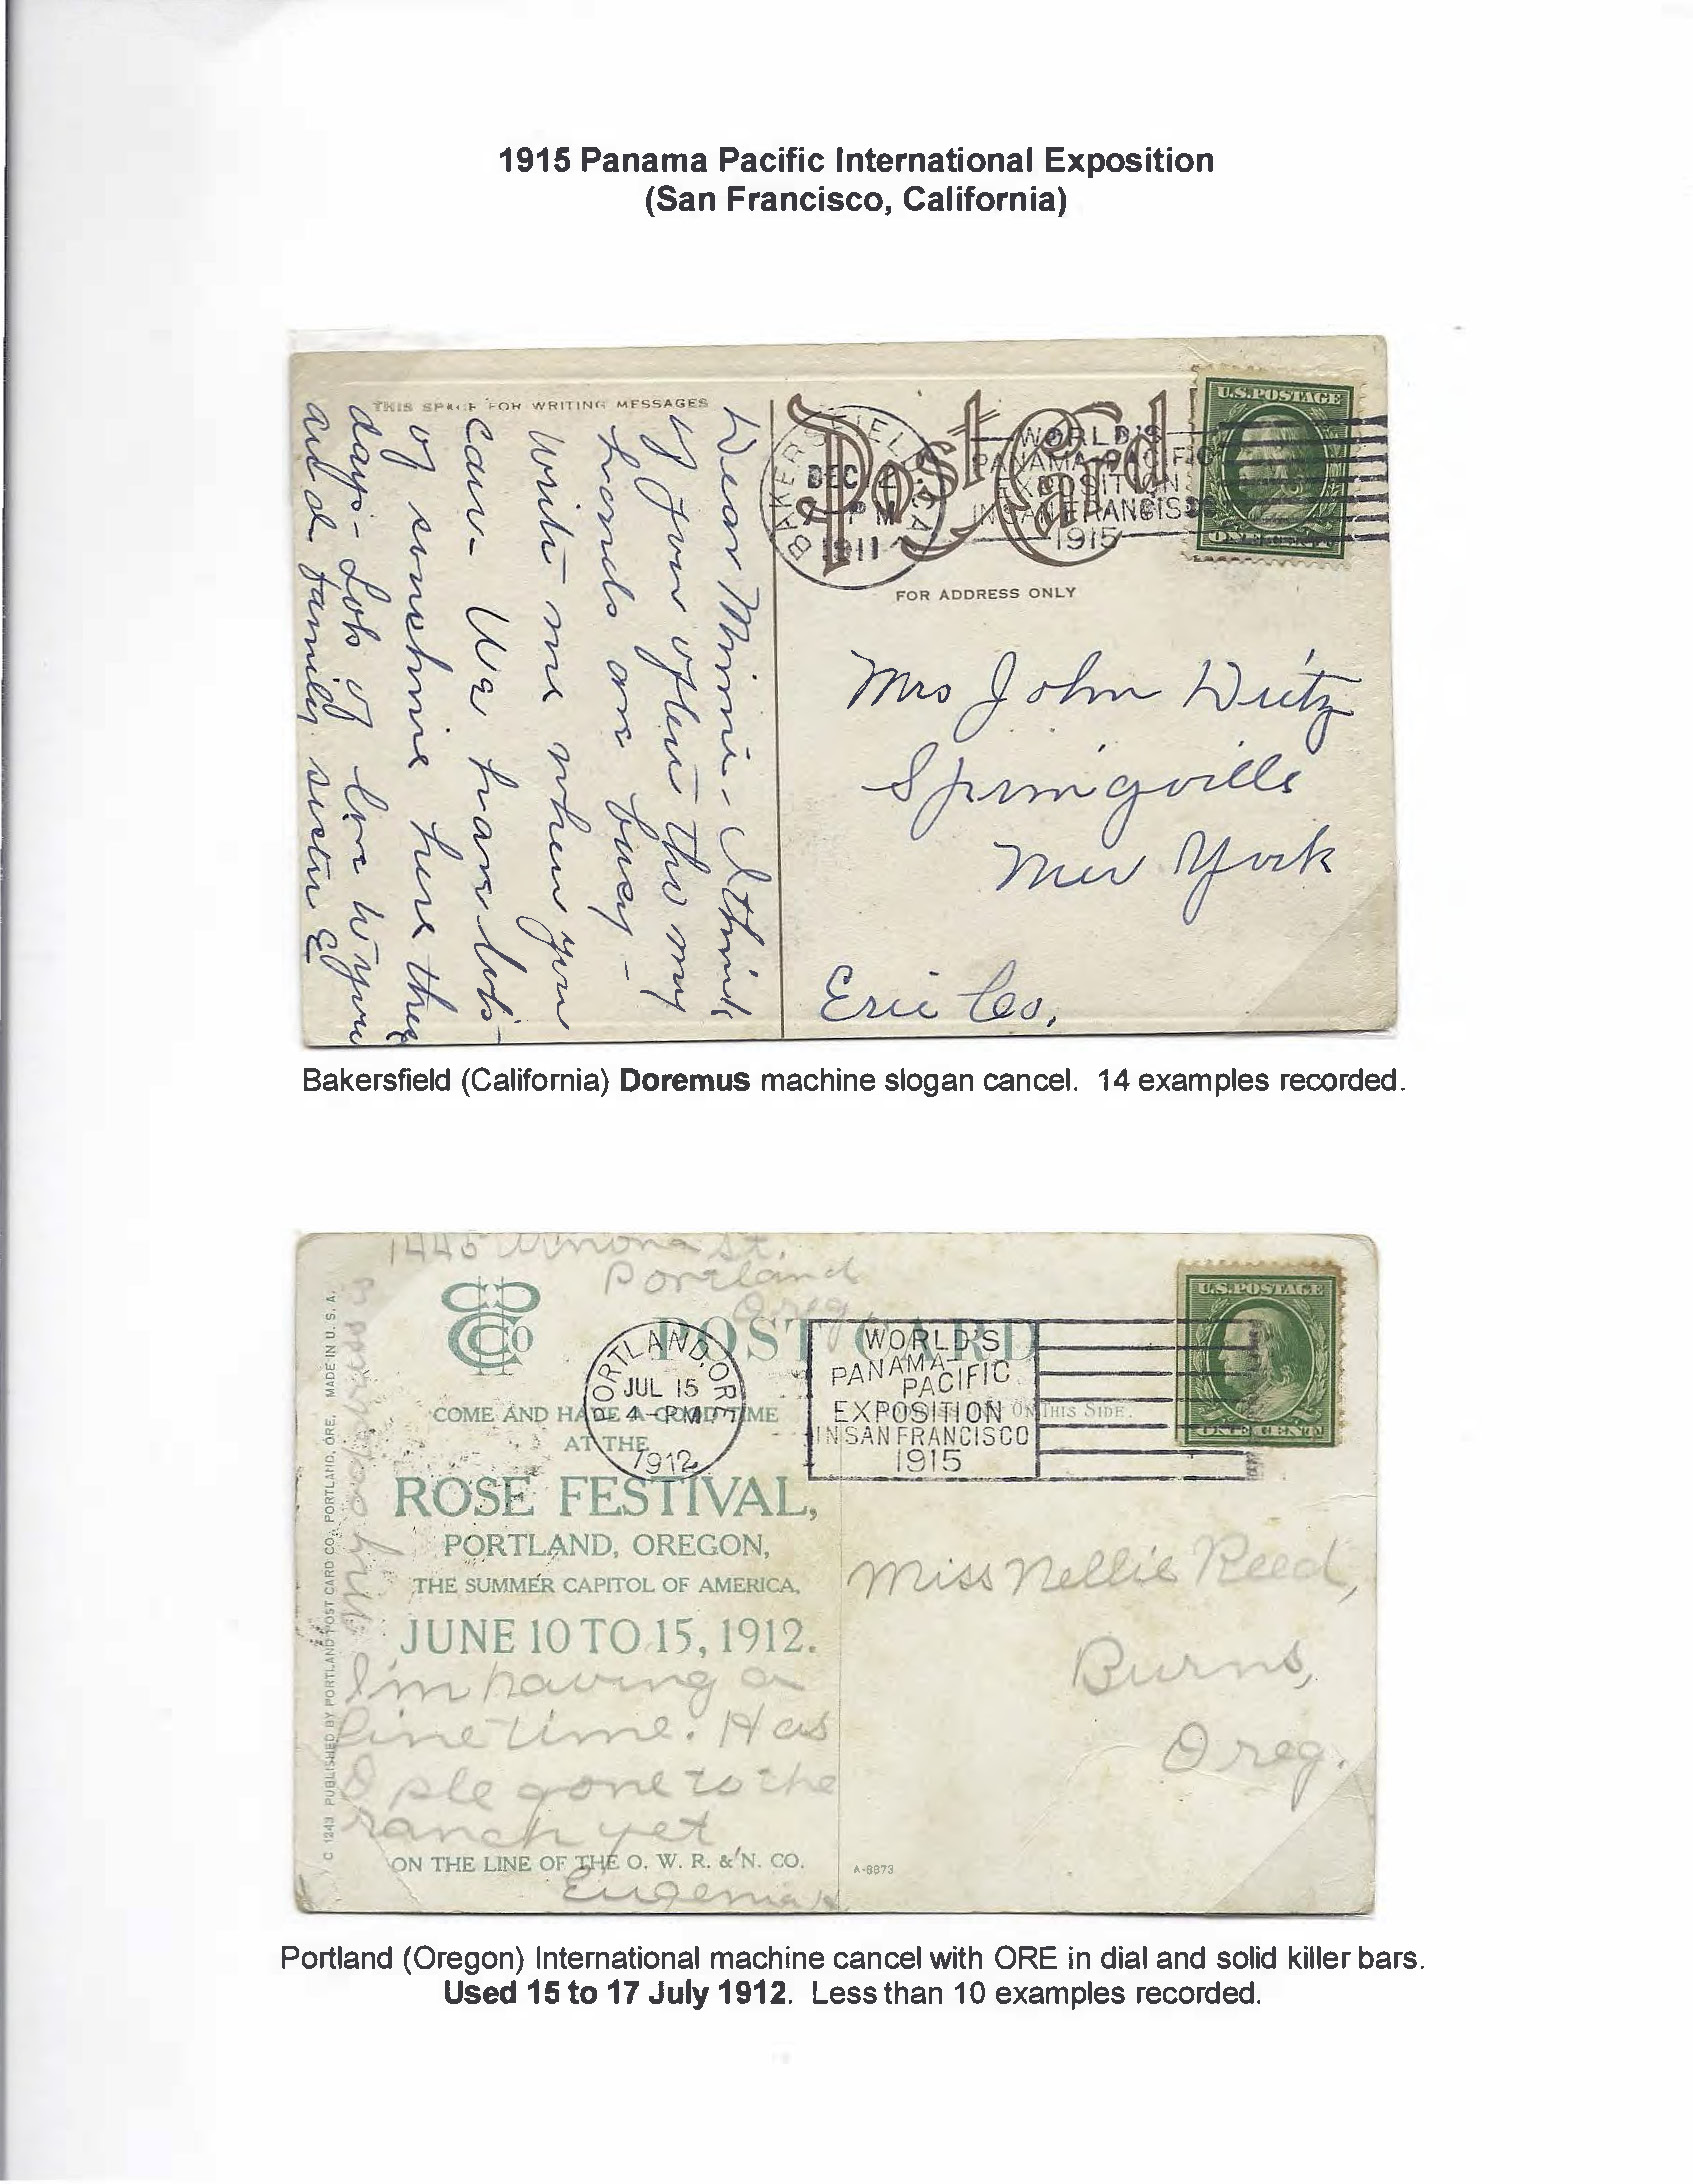 1915 Panama Pacific International Exposition
(San Francisco, California)
THIS SPACE FOR WRITING MESSAGES
Post Card
U.S. POSTAGE
ONE CENT
BAKERSFIELD, CA
DEC 2
7-PM
1911
WORLD'S
PANAMA-PACIFIC
EXPOSITION
IN SAN FRANCISCO
1915
FOR ADDRESS ONLY
Dear Minnie - I think
of you often tho my
hands are busy -
Write me when you
can. We have lots
of sunshine here these
days - Lots of love to you
and family. sister E
Mrs John
Springville
New York
Erie Co,
Bakersfield (California) Doremus machine slogan cancel. 14 examples recorded.
1445 Winona St.
Portland
Oreg.
My address is
POST CARD
U.S. POSTAGE
ONE CENT
PORTLAND, ORE
JUL 15
4-PM
1912
WORLD'S
PANAMA-
PACIFIC
EXPOSITION
IN SAN FRANCISCO
1915
ON THIS SIDE.
COME AND HAVE A GOOD TIME
AT THE
ROSE FESTIVAL,
PORTLAND, OREGON,
THE SUMMER CAPITOL OF AMERICA,
JUNE 10 TO 15, 1912.
I'm having a
fine time. Has
ple gone to the
ranch yet
ON THE LINE OF THE O. W. R. & N. CO.
Eugenia
C 1243 PUBLISHED BY PORTLAND POST CARD CO., PORTLAND, ORE. MADE IN U. S. A.
A-8873
Miss Nellie Reed,
Burns,
Oreg.
Portland (Oregon) International machine cancel with ORE in dial and solid killer bars.
Used 15 to 17 July 1912. Less than 10 examples recorded.